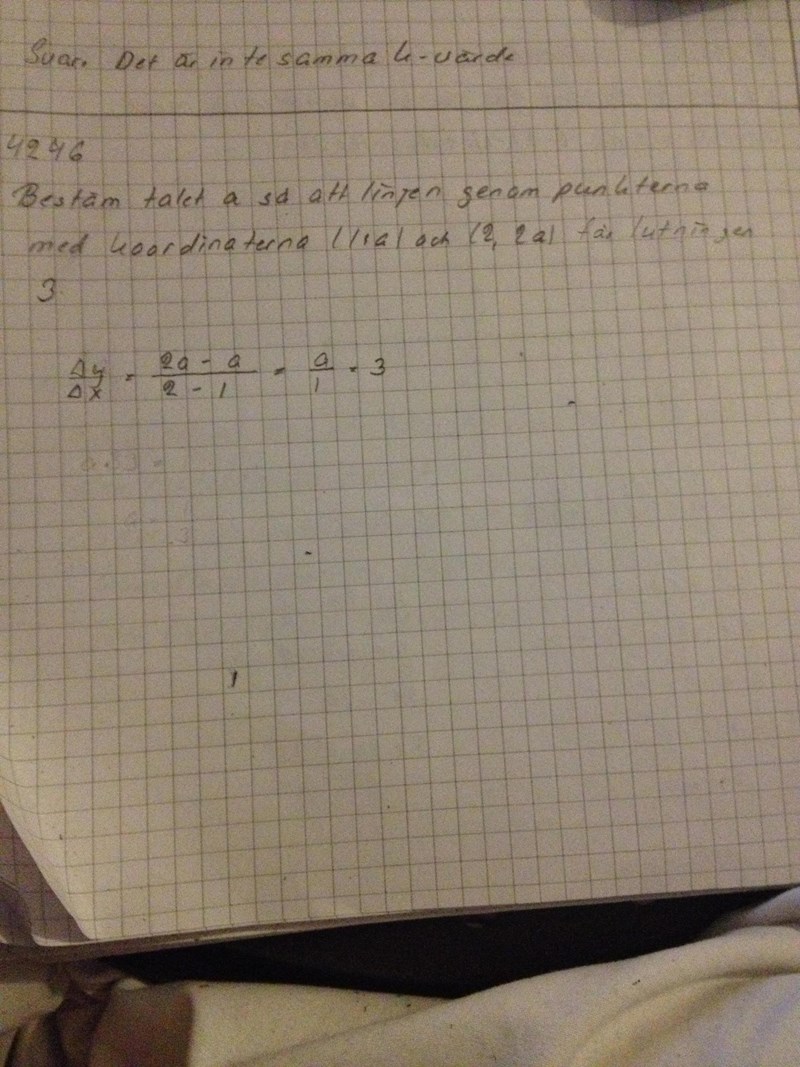 Svar. Det är inte samma k-värde
4246
Bestäm talet a så att linjen genom punkterna
med koordinaterna (1,a) och (2, 2a) får lutningen
3.
Δy/Δx = 2a - a/2 - 1 = a/1 = 3